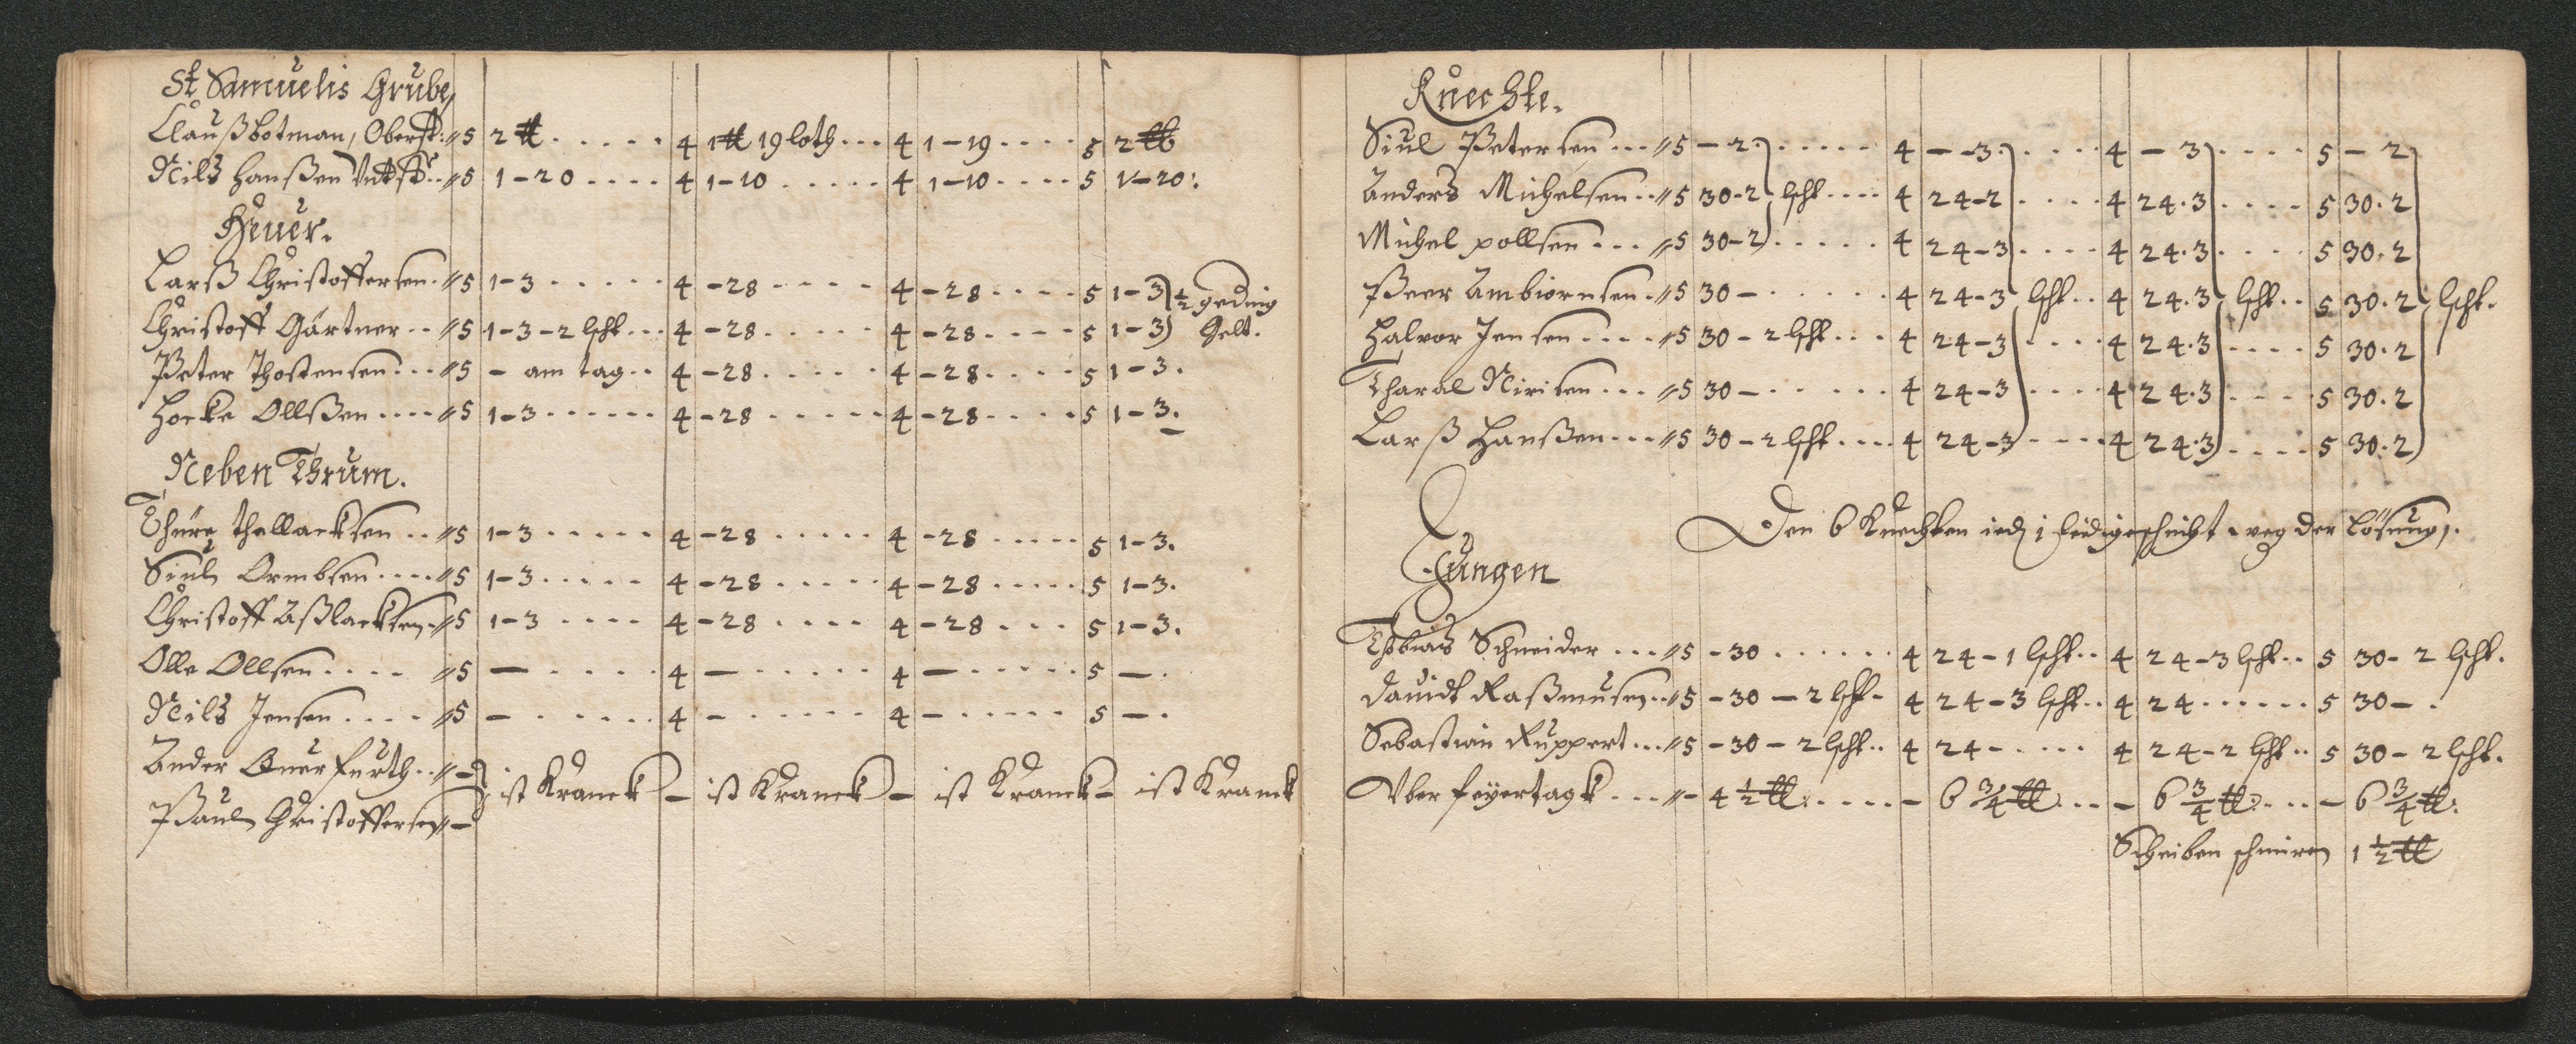 St Samuelis Grube,
Claußbotman, Oberst: 5 2 ℔ ..... 4 1 ℔ 19 loth ... 4 1-19 .... 5 2 ℔
Nilß Hanßen Vntst: .. 5 1-20 .... 4 1-10 ..... 4 1-10 .... 5 1-20:
Heuer.
Larß Christoffersen. 5 1-3 ...... 4 -28 ..... 4 -28 .... 5 1-3 ½ geding
Christoff Gärtner .. 5 1-3-2 lscht ... 4 -28 ..... 4 -28 .... 5 1-3 Gelt.
Peter Thostensen ... 5 - am tag .. 4 -28 ..... 4 -28 .... 5 1-3.
Hocke Ollßen .... 5 1-3 ...... 4 -28 ...... 4 -28 .... 5 1-3.
Neben Thrum.
Thure Thallacksen .. 5 1-3 ..... 4 -28 ..... 4 -28 ..... 5 1-3.
Siul Ormbsen .... 5 1-3 ..... 4 -28 ..... 4 -28 ..... 5 1-3.
Christoff Aßlacksen. 5 1-3 .... 4 -28 .... 4 -28 ... 5 1-3.
Olle Ollsen .... 5 - ..... 4 - ..... 4 - ..... 5 -.
Nilß Jensen .... 5 - ..... 4 - ..... 4 - ..... 5 -.
Ander Querfurth .. -
ist Kranck - ist Kranck - ist Kranck - ist Kranck
Paul Christoffersen -
Knechte.
Siul Petersen ... 5 -2 ..... 4 --3 .... 4 -3 .... 5 -2
Anders Michelsen .. 5 30-2 lscht .... 4 24-2 .... 4 24.3 .... 5 30.2
Michel pollsen ... 5 30-2 ..... 4 24-3 .... 4 24.3 .... 5 30.2
Peer Ambiornsen. 5 30- ...... 4 24-3 lscht .. 4 24.3 lscht .. 5 30.2 lscht.
Halvor Jensen .... 5 30-2 lscht ... 4 24-3 .... 4 24.3 .... 5 30.2
Tharal Nirisen ... 5 30- ...... 4 24-3 .... 4 24.3 .... 5 30.2
Larß Hanßen ... 5 30-2 lscht .... 4 24-3 .... 4 24.3 .... 5 30.2
Den 6 Knechten ied 1 ledigeschicht weg der Lösung,.
Jungen
Thobias Schneider ... 5 -30 ...... 4 24-1 lscht .. 4 24-3 lscht .. 5 30-2 lscht.
Dauidt Raßmusen .. 5 -30-2 lscht - 4 24-3 lscht .. 4 24 ...... 5 30-.
Sebastian Ruppert ... 5 -30-2 lscht .. 4 24- .... 4 24-2 lscht .. 5 30-2 lscht.
Vber feyertagk ... - 4 ½ ℔: .... - 6 ¾ ℔ ... - 6 ¾ ℔: ... - 6 ¾ ℔:
Scheiben schmiren 1 ½ ℔